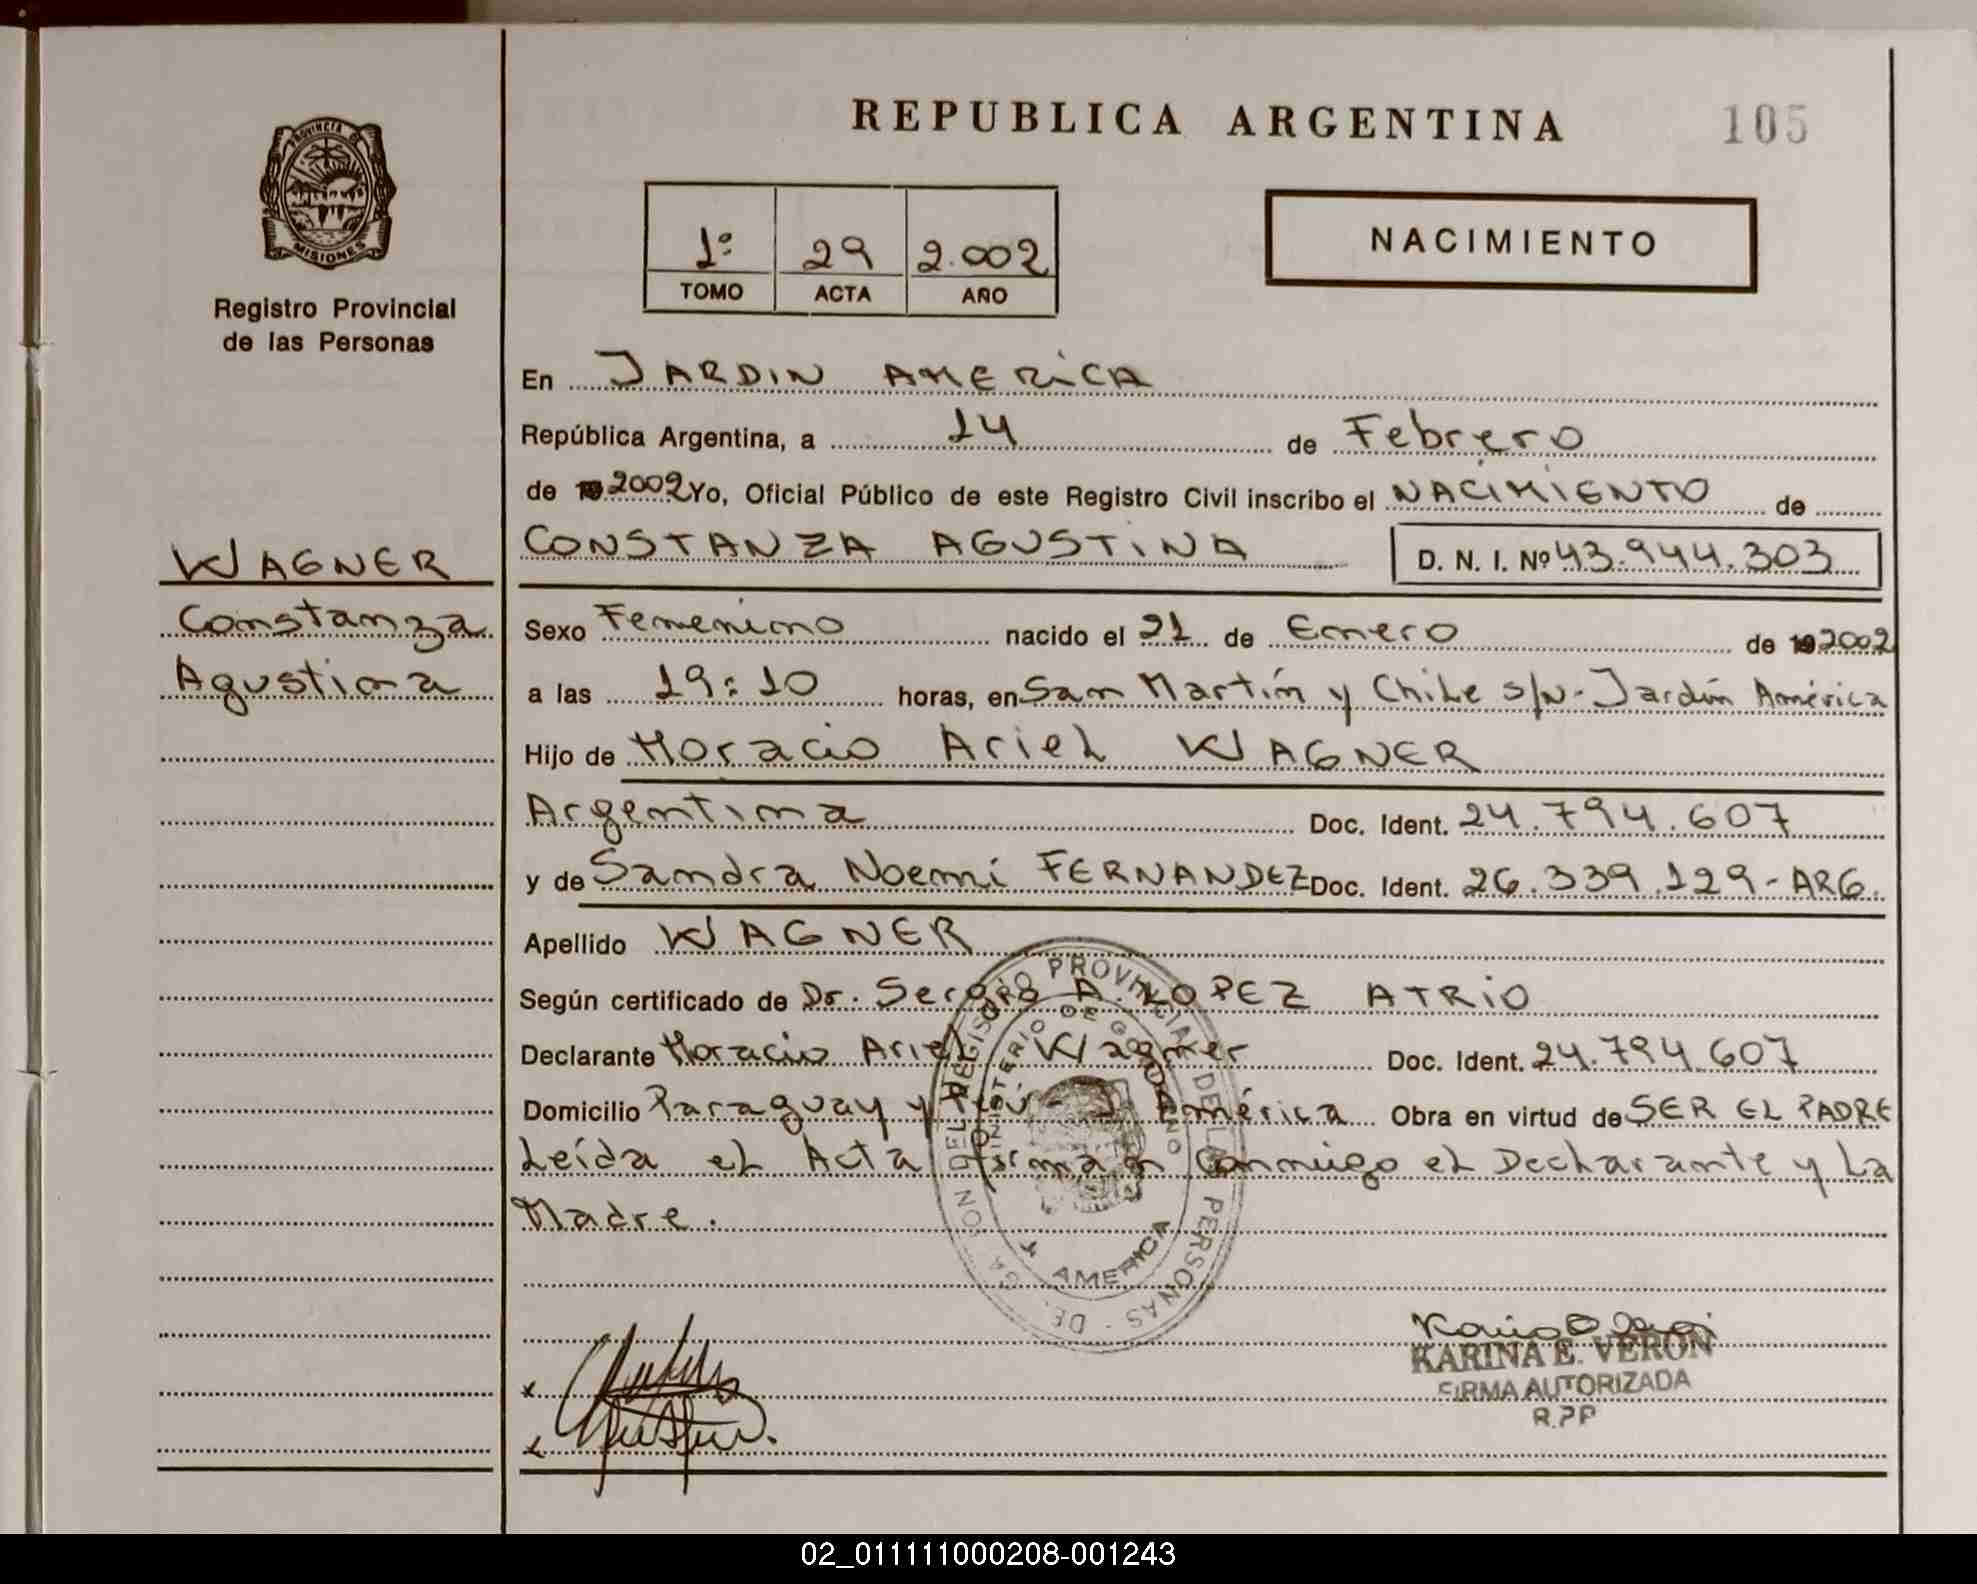 REPUBLICA ARGENTINA
105
PROVINCIA DE
MISIONES
Registro Provincial
de las Personas
1º 29 2.002
TOMO ACTA AÑO
NACIMIENTO
En JARDIN AMERICA
República Argentina, a 14 de Febrero
de 19 2002 Yo, Oficial Público de este Registro Civil inscribo el NACIMIENTO de
CONSTANZA AGUSTINA D. N. I. Nº 43.944.303
WAGNER
Constanza
Agustina
Sexo Femenino nacido el 21 de Enero de 19 2002
a las 19:10 horas, en San Martín y Chile s/N - Jardín América
Hijo de Horacio Ariel WAGNER
Argentina Doc. Ident. 24.794.607
y de Sandra Noemi FERNANDEZ Doc. Ident. 26.339.129 - ARG.
Apellido WAGNER
Según certificado de Dr. Sergio A. LOPEZ ATRIO
Declarante Horacio Ariel Wagner Doc. Ident. 24.794.607
Domicilio Paraguay y Perú - J. América Obra en virtud de SER EL PADRE
Leída el Acta firman conmigo el Declarante y La
Madre.
REGISTRO PROVINCIAL DE LAS PERSONAS
MINISTERIO DE GOBIERNO
AMERICA
x
x
KARINA E. VERON
FIRMA AUTORIZADA
R.P.P
02_011111000208-001243